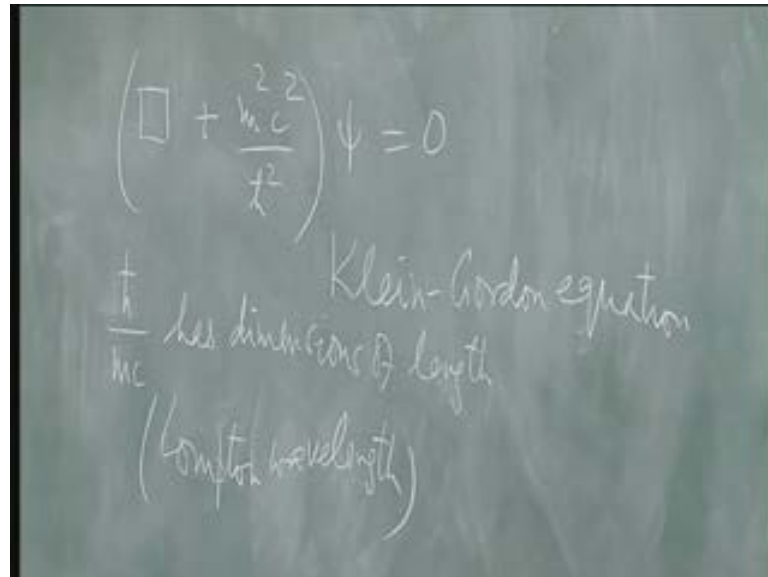 (□ + m²c²/ħ²) ψ = 0
Klein-Gordon equation
ħ/mc has dimensions of length
(Compton wavelength)